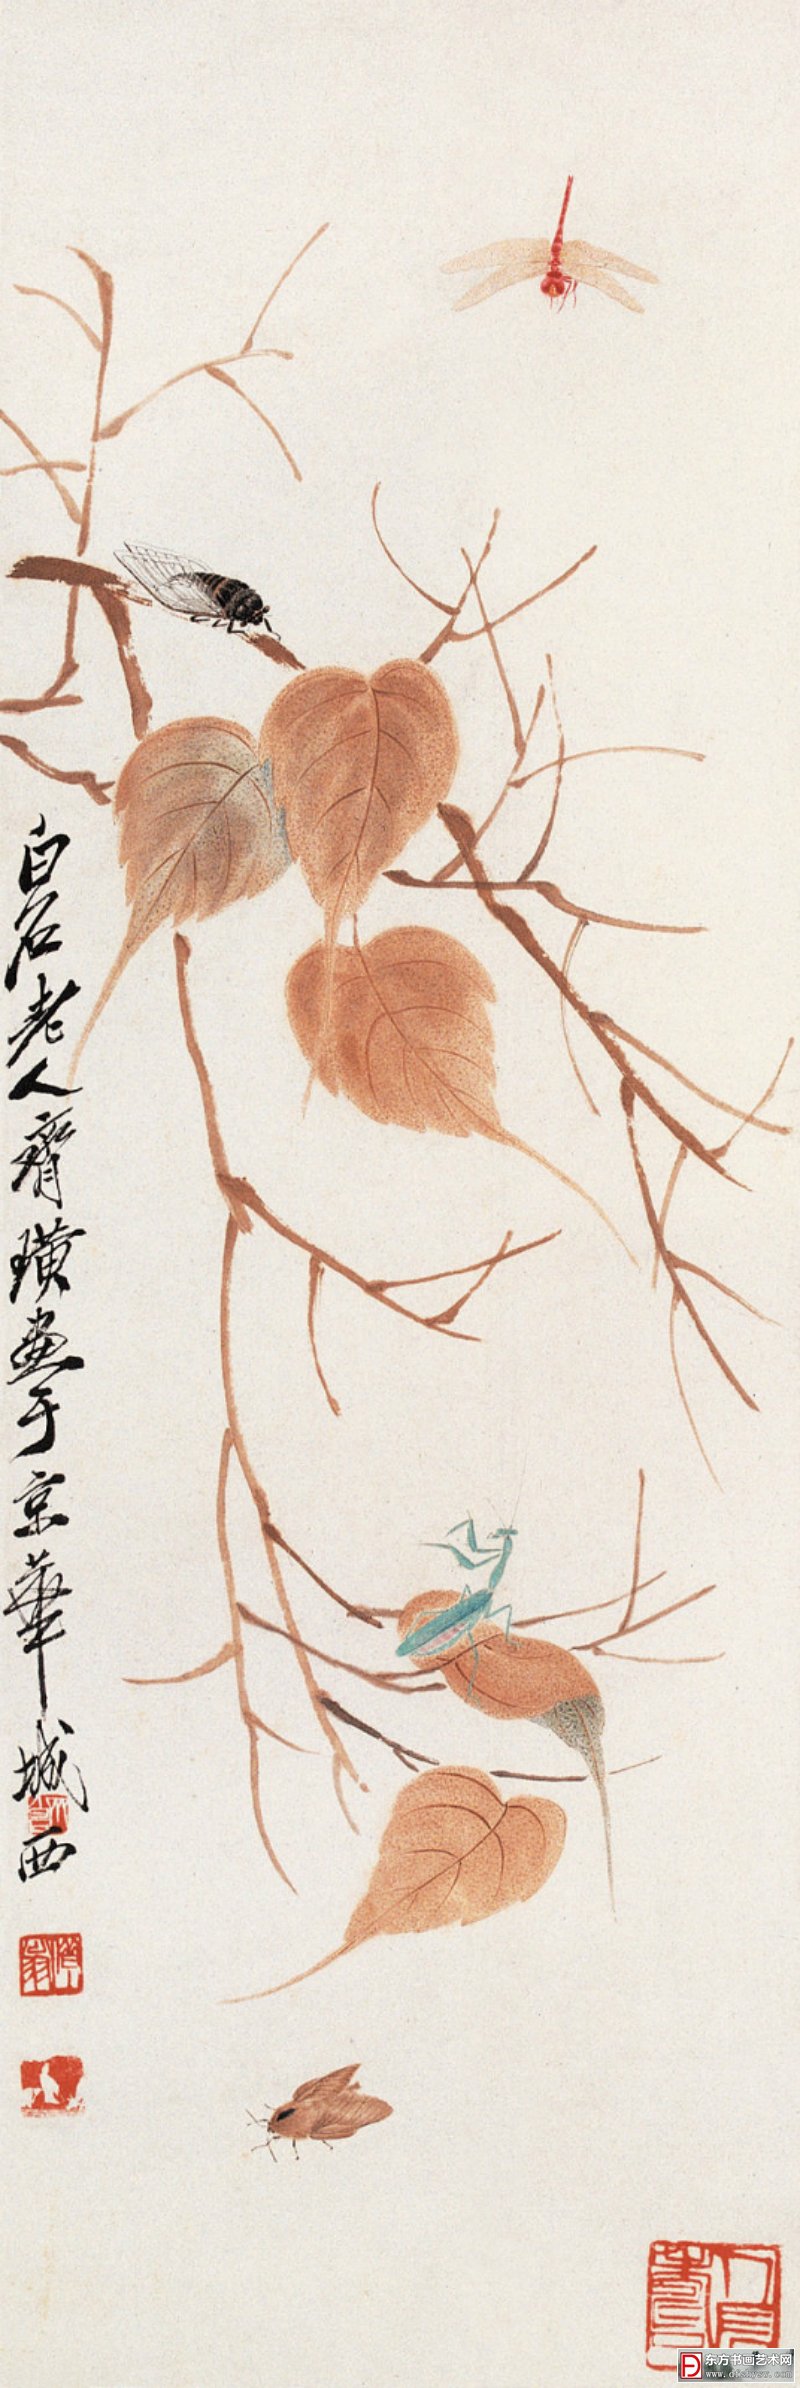 白石老人齊璜畫于京華城西
东方书画艺术网